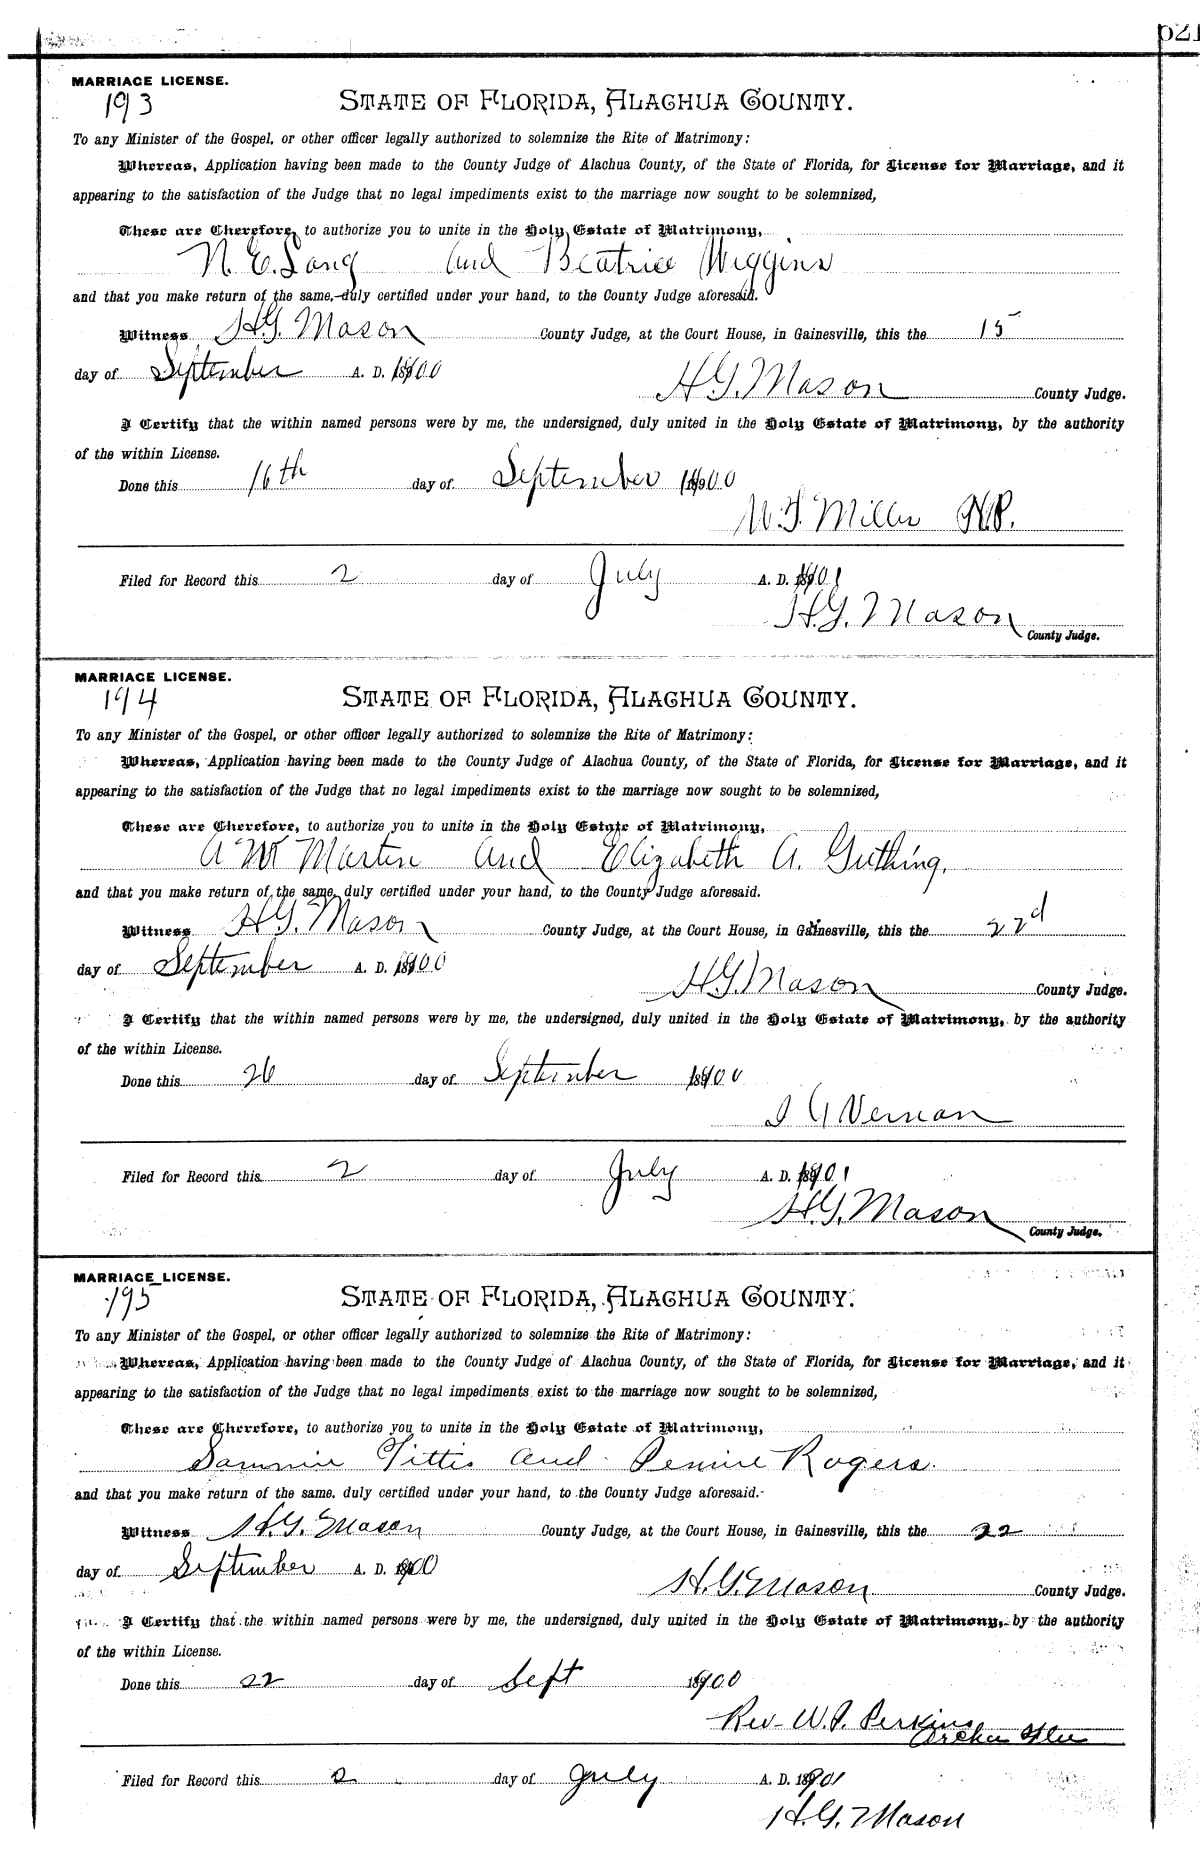 521
MARRIAGE LICENSE.
193
STATE OF FLORIDA, ALACHUA COUNTY.
To any Minister of the Gospel, or other officer legally authorized to solemnize the Rite of Matrimony:
Whereas, Application having been made to the County Judge of Alachua County, of the State of Florida, for License for Marriage, and it
appearing to the satisfaction of the Judge that no legal impediments exist to the marriage now sought to be solemnized,
These are Therefore, to authorize you to unite in the Holy Estate of Matrimony,
N. E. Lang and Beatrice Wiggins
and that you make return of the same, duly certified under your hand, to the County Judge aforesaid.
Witness H.G. Mason County Judge, at the Court House, in Gainesville, this the 15
day of September A. D. 1900
H.G. Mason County Judge.
I Certify that the within named persons were by me, the undersigned, duly united in the Holy Estate of Matrimony, by the authority
of the within License.
Done this 16th day of September 1900
W. F. Miller N.P.
Filed for Record this 2 day of July A. D. 1901
H.G. Mason
County Judge.
MARRIAGE LICENSE.
194
STATE OF FLORIDA, ALACHUA COUNTY.
To any Minister of the Gospel, or other officer legally authorized to solemnize the Rite of Matrimony:
Whereas, Application having been made to the County Judge of Alachua County, of the State of Florida, for License for Marriage, and it
appearing to the satisfaction of the Judge that no legal impediments exist to the marriage now sought to be solemnized,
These are Therefore, to authorize you to unite in the Holy Estate of Matrimony,
A W Martin and Elizabeth A. Guthing.
and that you make return of the same, duly certified under your hand, to the County Judge aforesaid.
Witness H.G. Mason County Judge, at the Court House, in Gainesville, this the 22d
day of September A. D. 1900
H.G. Mason County Judge.
I Certify that the within named persons were by me, the undersigned, duly united in the Holy Estate of Matrimony, by the authority
of the within License.
Done this 26 day of September 1900
Vernan
Filed for Record this 2 day of July A. D. 1901
H.G. Mason
County Judge.
MARRIAGE LICENSE.
195
STATE OF FLORIDA, ALACHUA COUNTY.
To any Minister of the Gospel, or other officer legally authorized to solemnize the Rite of Matrimony:
Whereas, Application having been made to the County Judge of Alachua County, of the State of Florida, for License for Marriage, and it
appearing to the satisfaction of the Judge that no legal impediments exist to the marriage now sought to be solemnized,
These are Therefore, to authorize you to unite in the Holy Estate of Matrimony,
Sammie Tittis and Pennie Rogers.
and that you make return of the same, duly certified under your hand, to the County Judge aforesaid.
Witness H.G. Mason County Judge, at the Court House, in Gainesville, this the 22
day of September A. D. 1900
H.G. Mason County Judge.
I Certify that the within named persons were by me, the undersigned, duly united in the Holy Estate of Matrimony, by the authority
of the within License.
Done this 22 day of Sept 1900
Rev- W.P. Perkins
Archer Fla
Filed for Record this 2 day of July A. D. 1901
H.G. Mason